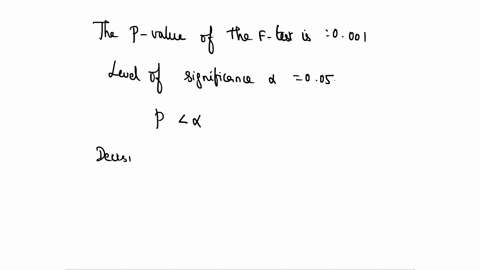 The P-value of the F-test is :0.001
Level of significance α =0.05
P < α
Decisi